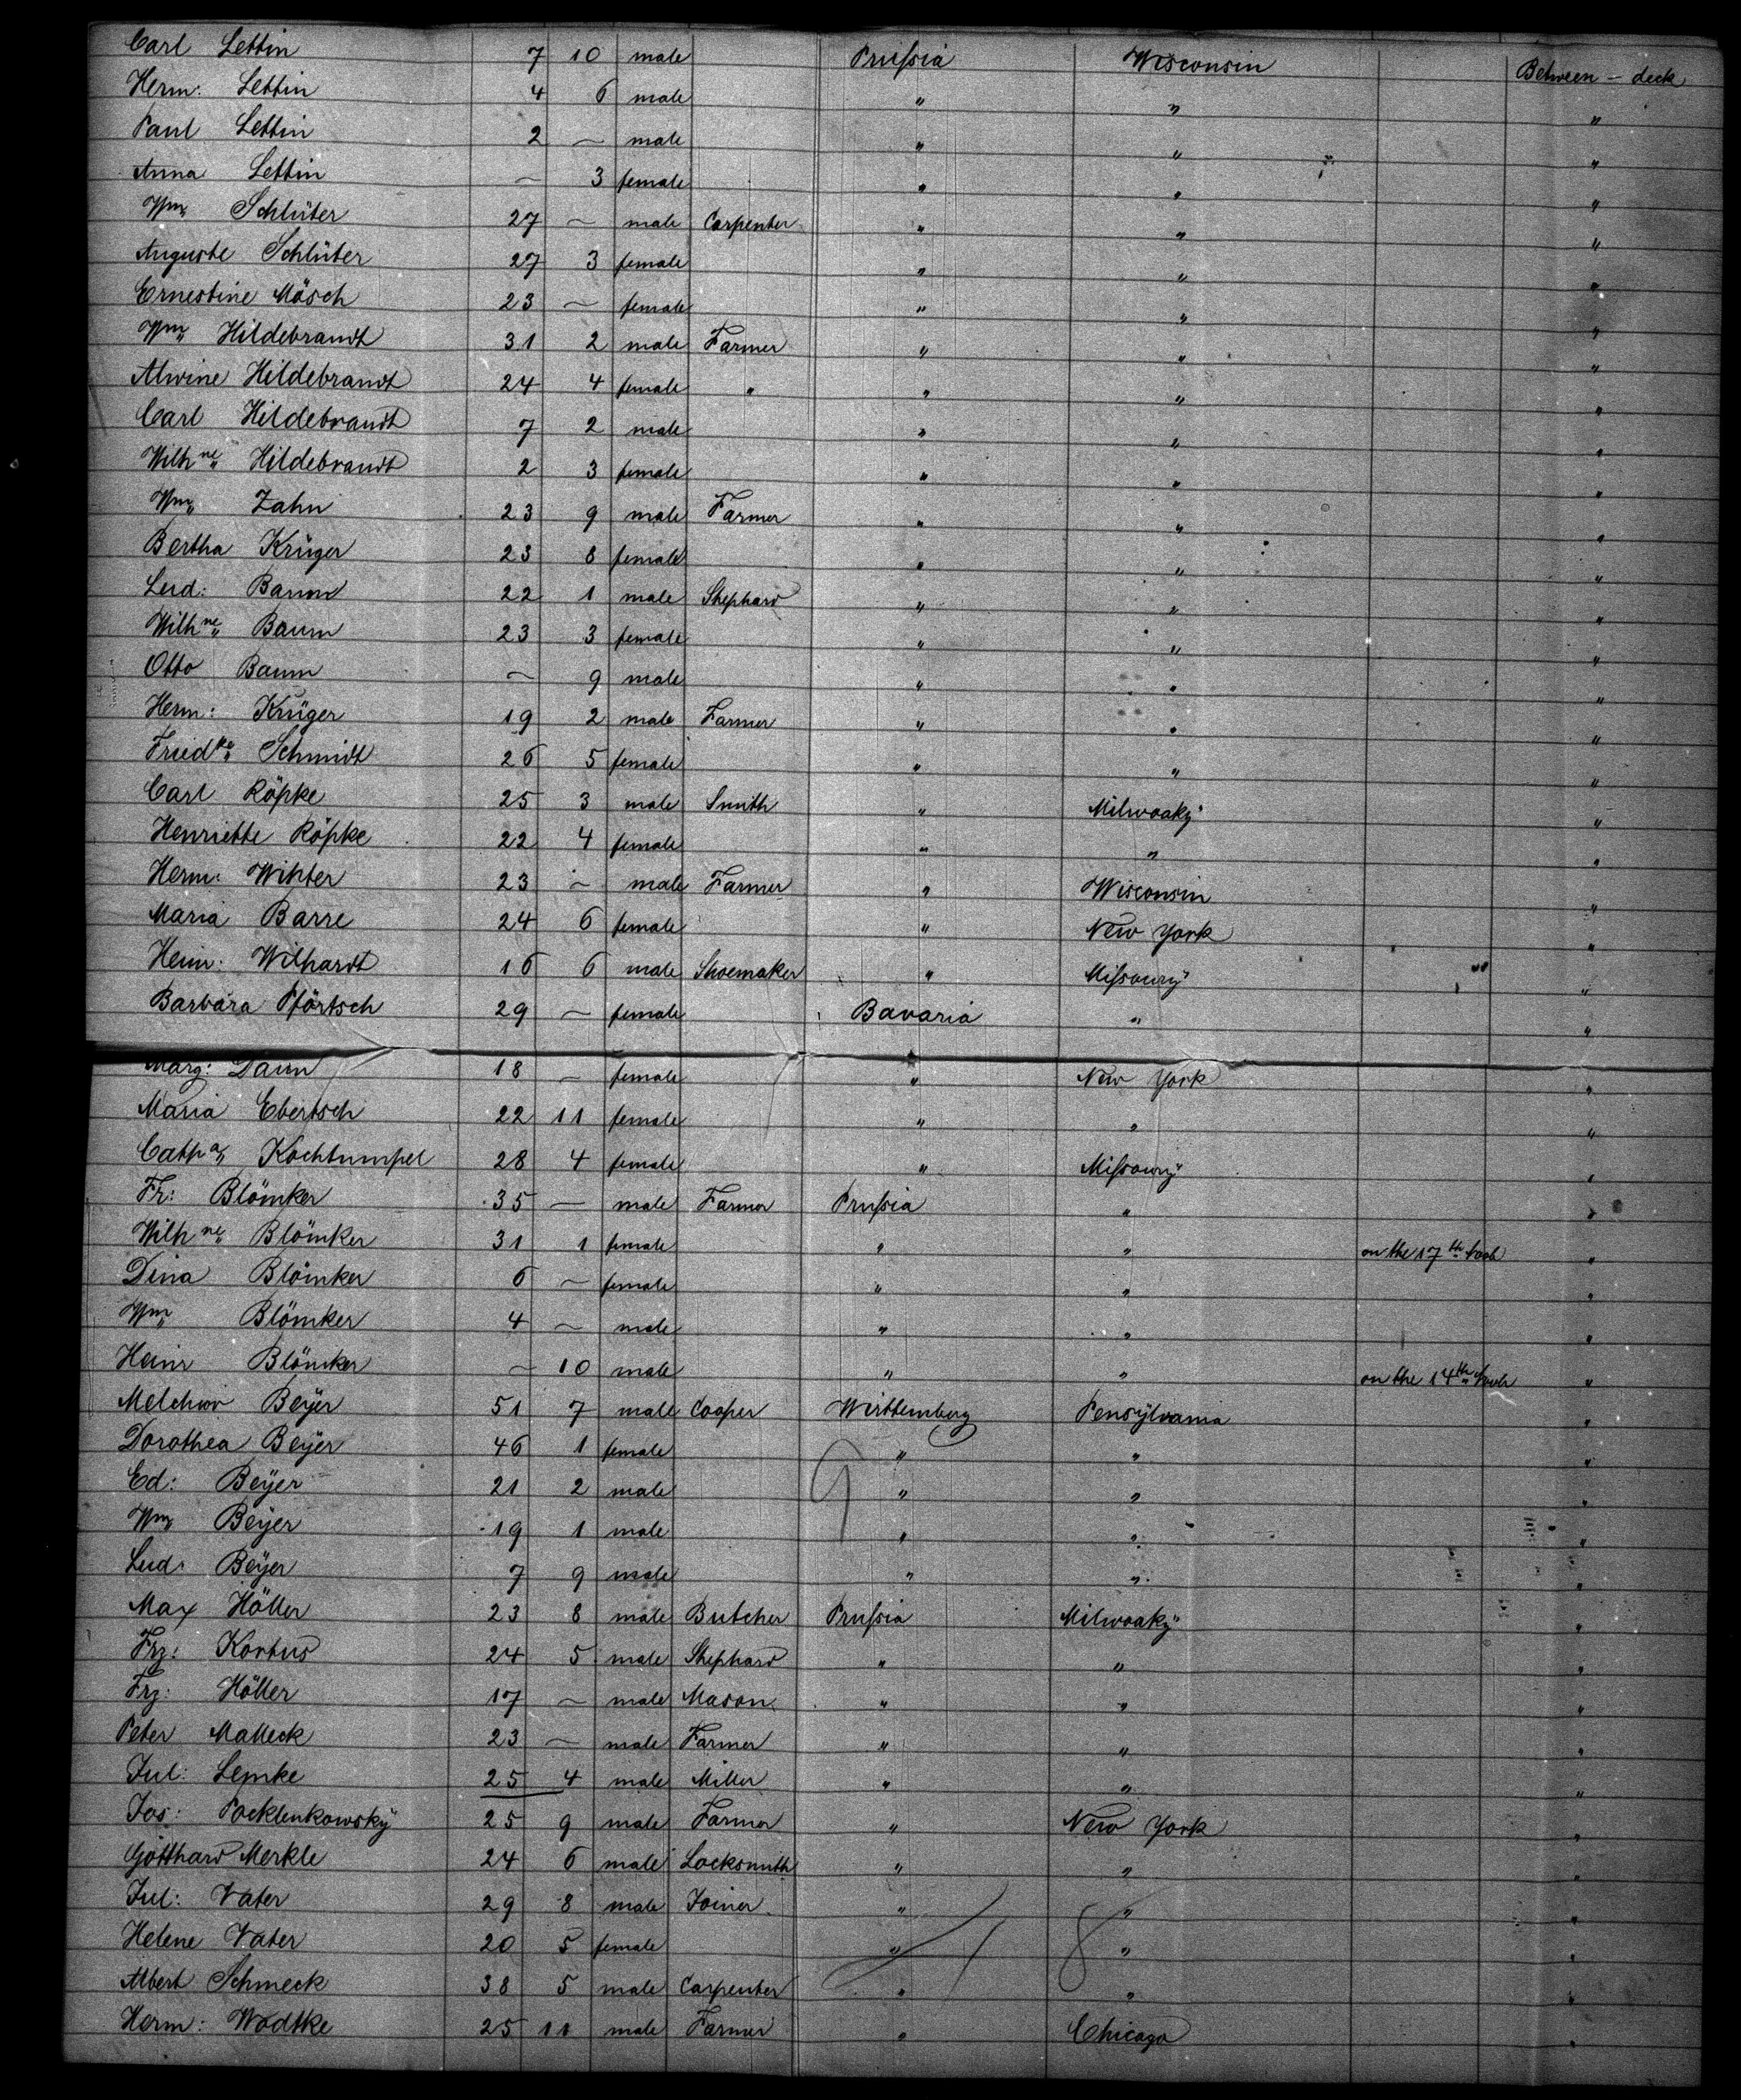 Carl Lettin 7 10 male Prussia Wisconsin Between - deck
Herm: Lettin 4 6 male " " "
Paul Lettin 2 ~ male " " "
Anna Lettin ~ 3 female " " "
Wm Schlüter 27 ~ male Carpenter " " "
Auguste Schlüter 27 3 female " " "
Ernestine Mösch 23 ~ female " " "
Wm Hildebrandt 31 2 male Farmer " " "
Alwine Hildebrandt 24 4 female " " " "
Carl Hildebrandt 7 2 male " " "
Wilhne Hildebrandt 2 3 female " " "
Wm Zahn 23 9 male Farmer " " "
Bertha Krüger 23 8 female " " "
Lud: Baum 22 1 male Shephard " " "
Wilhne Baum 23 3 female " " "
Otto Baum ~ 9 male " " "
Herm: Krüger 19 2 male Farmer " " "
Friedke Schmidt 26 5 female " " "
Carl Röpke 25 3 male Smith " Milwoaky "
Henriette Röpke 22 4 female " " "
Herm: Winter 23 ~ male Farmer " Wisconsin "
Maria Barre 24 6 female " New York "
Heinr: Wilhardt 16 6 male Shoemaker " Missoury "
Barbara Pförtsch 29 ~ female Bavaria " "
Marg: Daum 18 ~ female " New York "
Maria Ebertsch 22 11 female " " "
Catha Kochtumpel 28 4 female " Missoury "
Fr: Blömker 35 — male Farmer Prussia " "
Wilhne Blömker 31 1 female " " on the 17th "
Dina Blömker 6 ~ female " " "
Wm Blömker 4 ~ male " " "
Heinr Blömker ~ 10 male " " on the 14th "
Melchior Beÿer 51 7 male Cooper Wirttemberg Pensÿlvania "
Dorothea Beÿer 46 1 female " " "
Ed: Beÿer 21 2 male " " "
Wm Beÿer 19 1 male " " "
Lud: Beÿer 7 9 male " " "
Max Höller 23 8 male Butcher Prussia Milwoaky "
Frz: Kortus 24 5 male Shephard " " "
Frz: Höller 17 ~ male Mason " " "
Peter Malleck 23 ~ male Farmer " " "
Jul: Lemke 25 4 male Miller " " "
Jos: Pocklenkowskÿ 25 9 male Farmer " New York "
Gotthard Merkle 24 6 male Locksmith " " "
Jul: Vater 29 8 male Joiner " " "
Helene Vater 20 5 female " " "
Albert Schmeck 38 5 male Carpenter " " "
Herm: Wodtke 25 11 male Farmer " Chicago "